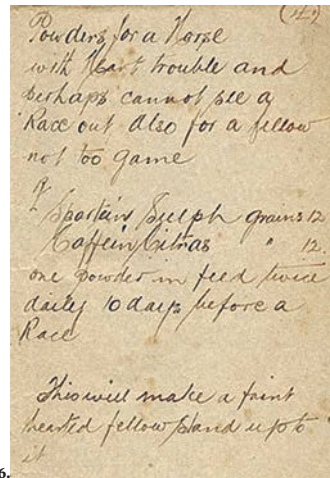 (54)
Powders for a Horse
with Heart trouble and
perhaps cannot see a
Race out Also for a fellow
not too game
Spartein Sulph grains 12
Caffein Citras " 12.
one powder in feed twice
daily 10 days before a
Race
This will make a faint
hearted fellow stand up to
it
6.